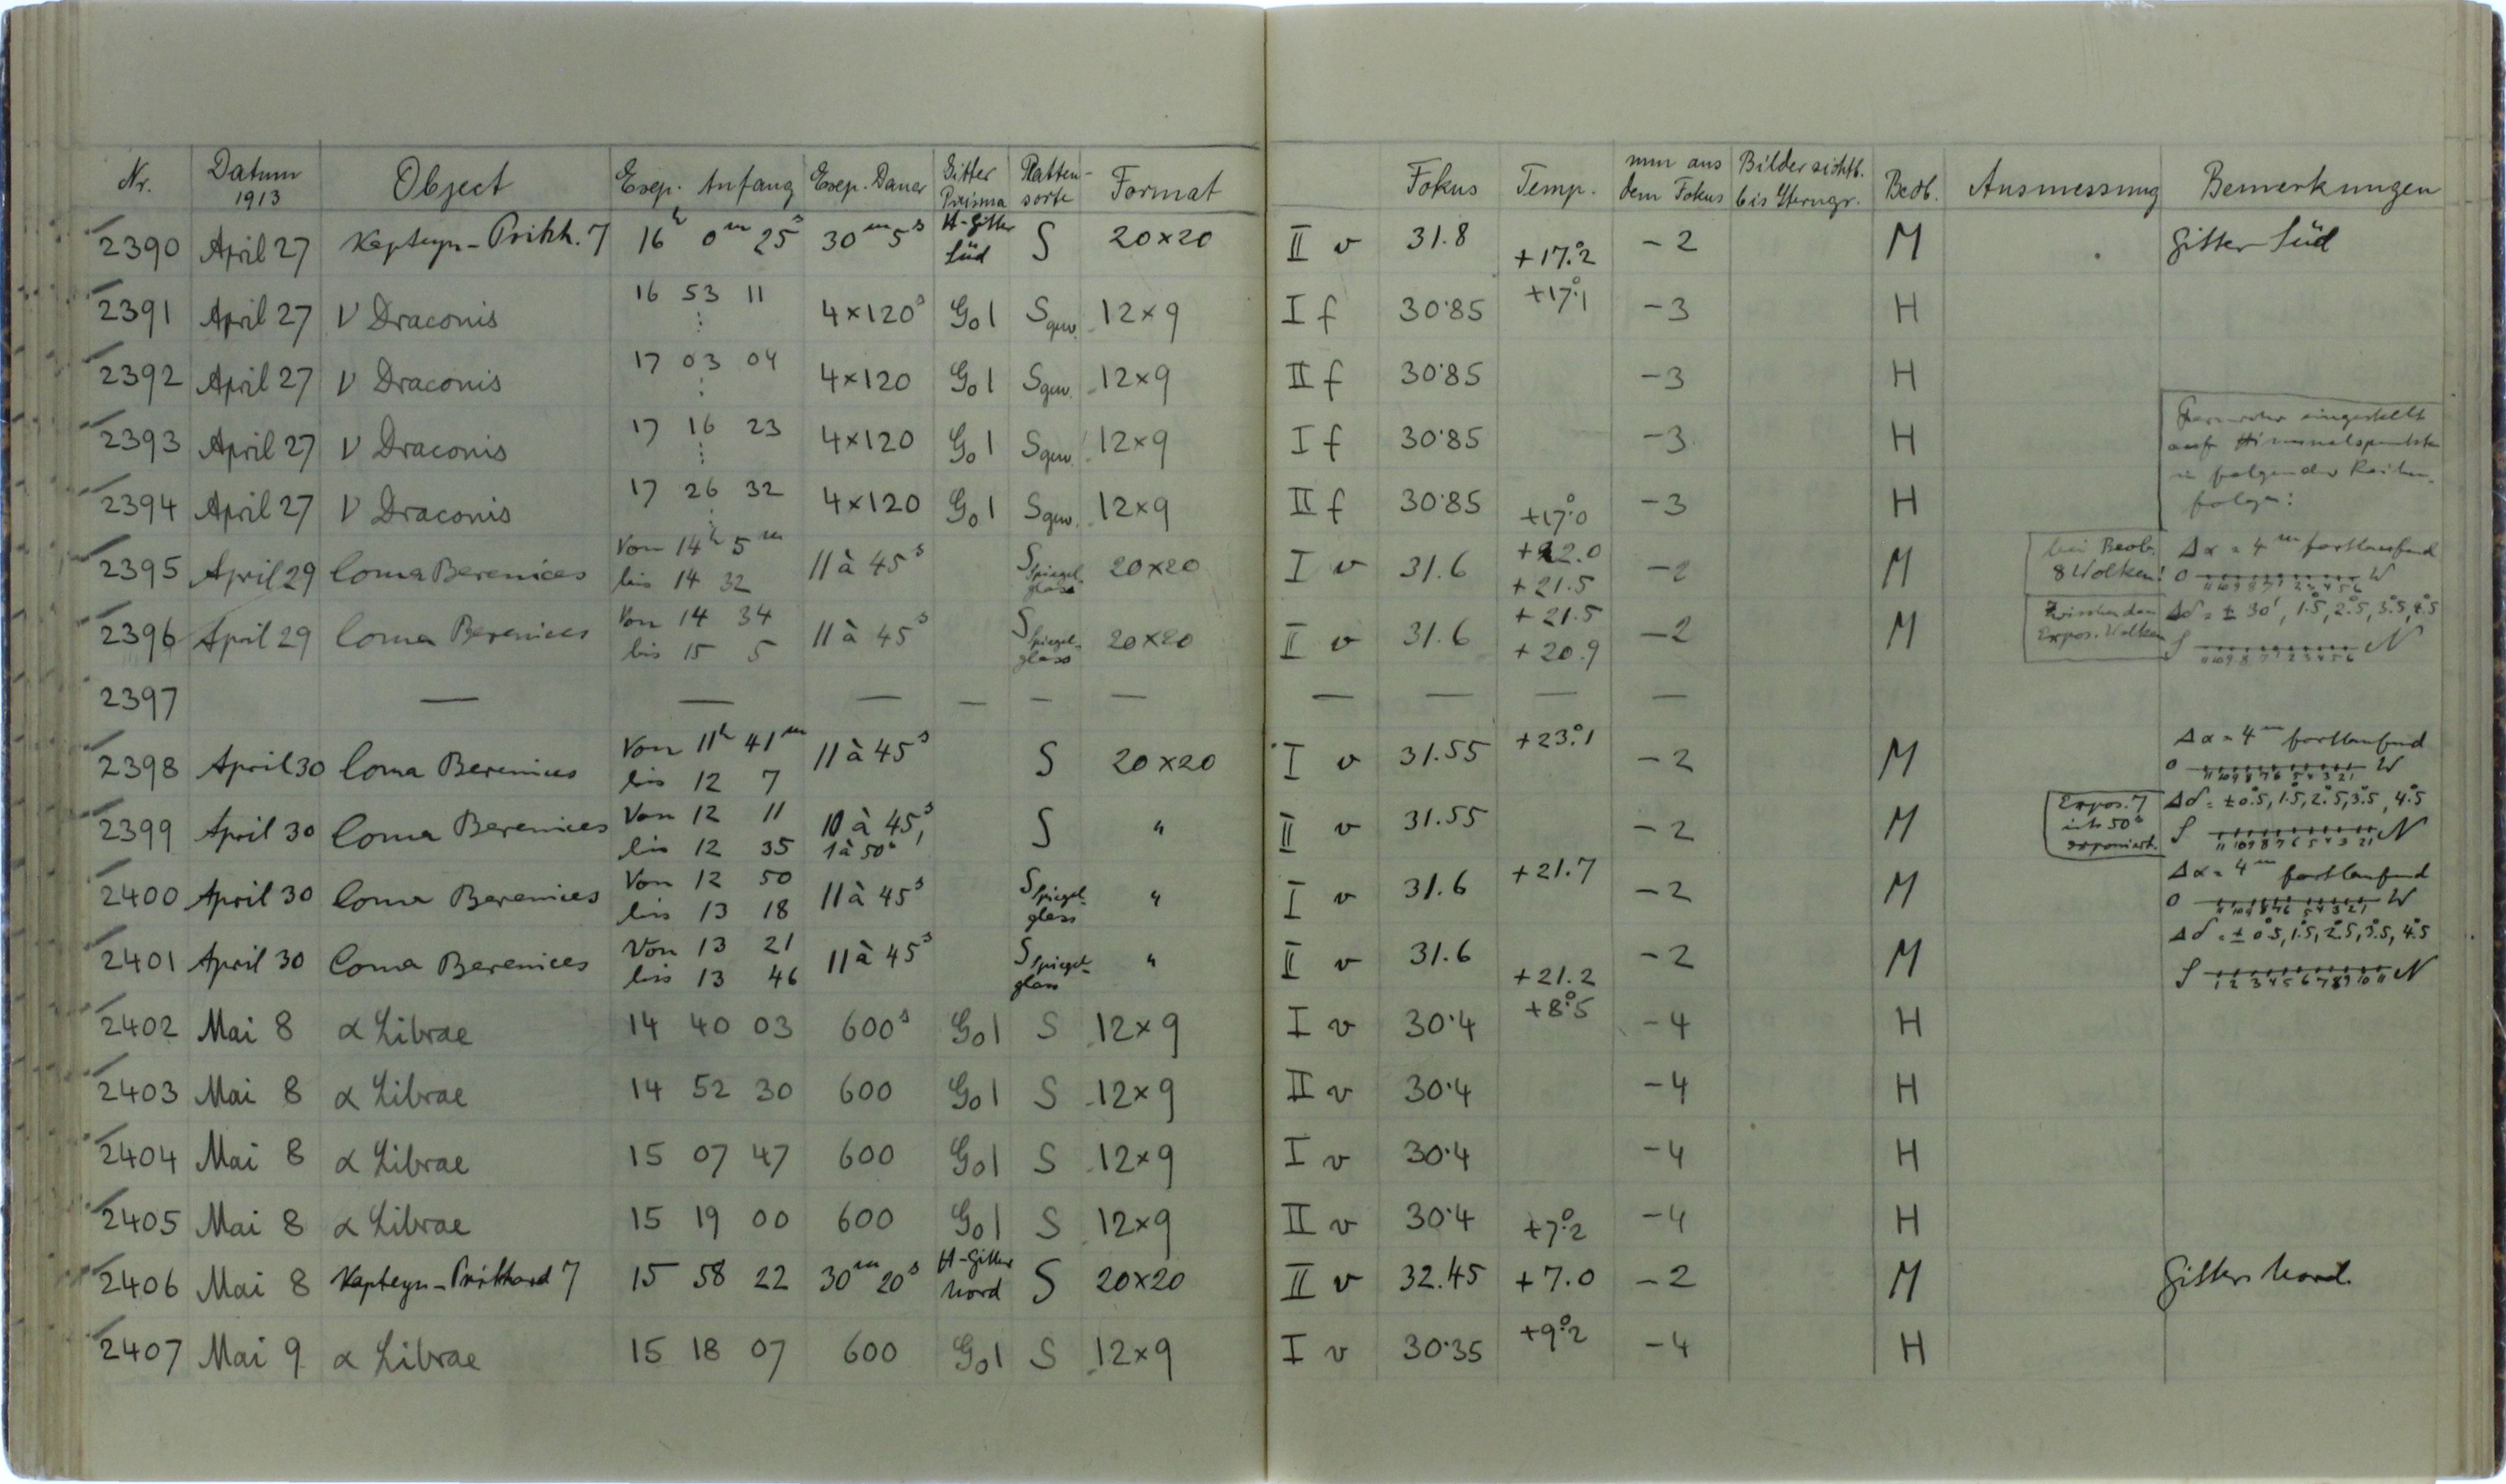 Nr. Datum 1913 Object Exp. Anfang Exp. Dauer Gitter Prisma Platten-sorte Format Fokus Temp. mm aus dem Fokus Bilder sichtb. bis Sterngr. Beob. Ausmessung Bemerkungen
2390 April 27 Kapteyn-Pritch. 7 16h 0m 25s 30m 5s H-Gitter Süd S 20×20 II v 31.8 +17.°2 -2 M Gitter Süd
2391 April 27 ν Draconis 16 53 11 4×120s G01 Sgew. 12×9 I f 30·85 +17.°1 -3 H
2392 April 27 ν Draconis 17 03 04 4×120 G01 Sgew. 12×9 II f 30·85 -3 H
2393 April 27 ν Draconis 17 16 23 4×120 G01 Sgew. 12×9 I f 30·85 -3 H
Fernrohr eingestellt
auf Himmelspunkte
in folgender Reihen-
folge:
2394 April 27 ν Draconis 17 26 32 4×120 G01 Sgew. 12×9 II f 30·85 +17.°0 -3 H
2395 April 29 Coma Berenices Von 14h 5m bis 14 32 11 à 45s S Spiegel-glass 20×20 I v 31.6 +22.0 +21.5 -2 M bei Beob. 8 Wolken! Δα = 4m fortlaufend
O 11 10 9 8 7 1 2 3 4 5 6 W
2396 April 29 Coma Berenices Von 14 34 bis 15 5 11 à 45s S Spiegel-glass 20×20 II v 31.6 +21.5 +20.9 -2 M Zwischen den Expos. Wolken Δδ = ± 30', 1.°5, 2.°5, 3.°5, 4.°5
S 11 10 9 8 7 1 2 3 4 5 6 N
2397 — — — — — — — — — —
2398 April 30 Coma Berenices Von 11h 41m bis 12 7 11 à 45s S 20×20 I v 31.55 +23.°1 -2 M Δα = 4m fortlaufend
O 11 10 9 8 7 6 5 4 3 2 1 W
2399 April 30 Coma Berenices Von 12 11 bis 12 35 10 à 45s, 1 à 50s S " II v 31.55 -2 M Expos. 7 ist 50s exponiert. Δδ = ±0.°5, 1.°5, 2.°5, 3.°5, 4.°5
S 11 10 9 8 7 6 5 4 3 2 1 N
2400 April 30 Coma Berenices Von 12 50 bis 13 18 11 à 45s S Spiegel-glass " I v 31.6 +21.7 -2 M Δα = 4m fortlaufend
O 11 10 9 8 7 6 5 4 3 2 1 W
2401 April 30 Coma Berenices Von 13 21 bis 13 46 11 à 45s S Spiegel-glass " II v 31.6 +21.2 -2 M Δδ = ± 0.°5, 1.°5, 2.°5, 3.°5, 4.°5
S 1 2 3 4 5 6 7 8 9 10 11 N
2402 Mai 8 α Librae 14 40 03 600s G01 S 12×9 I v 30·4 +8.°5 -4 H
2403 Mai 8 α Librae 14 52 30 600 G01 S 12×9 II v 30·4 -4 H
2404 Mai 8 α Librae 15 07 47 600 G01 S 12×9 I v 30·4 -4 H
2405 Mai 8 α Librae 15 19 00 600 G01 S 12×9 II v 30·4 +7.°2 -4 H
2406 Mai 8 Kapteyn-Pritchard 7 15 58 22 30m 20s H-Gitter Nord S 20×20 II v 32.45 +7.0 -2 M Gitter Nord.
2407 Mai 9 α Librae 15 18 07 600 G01 S 12×9 I v 30·35 +9.°2 -4 H